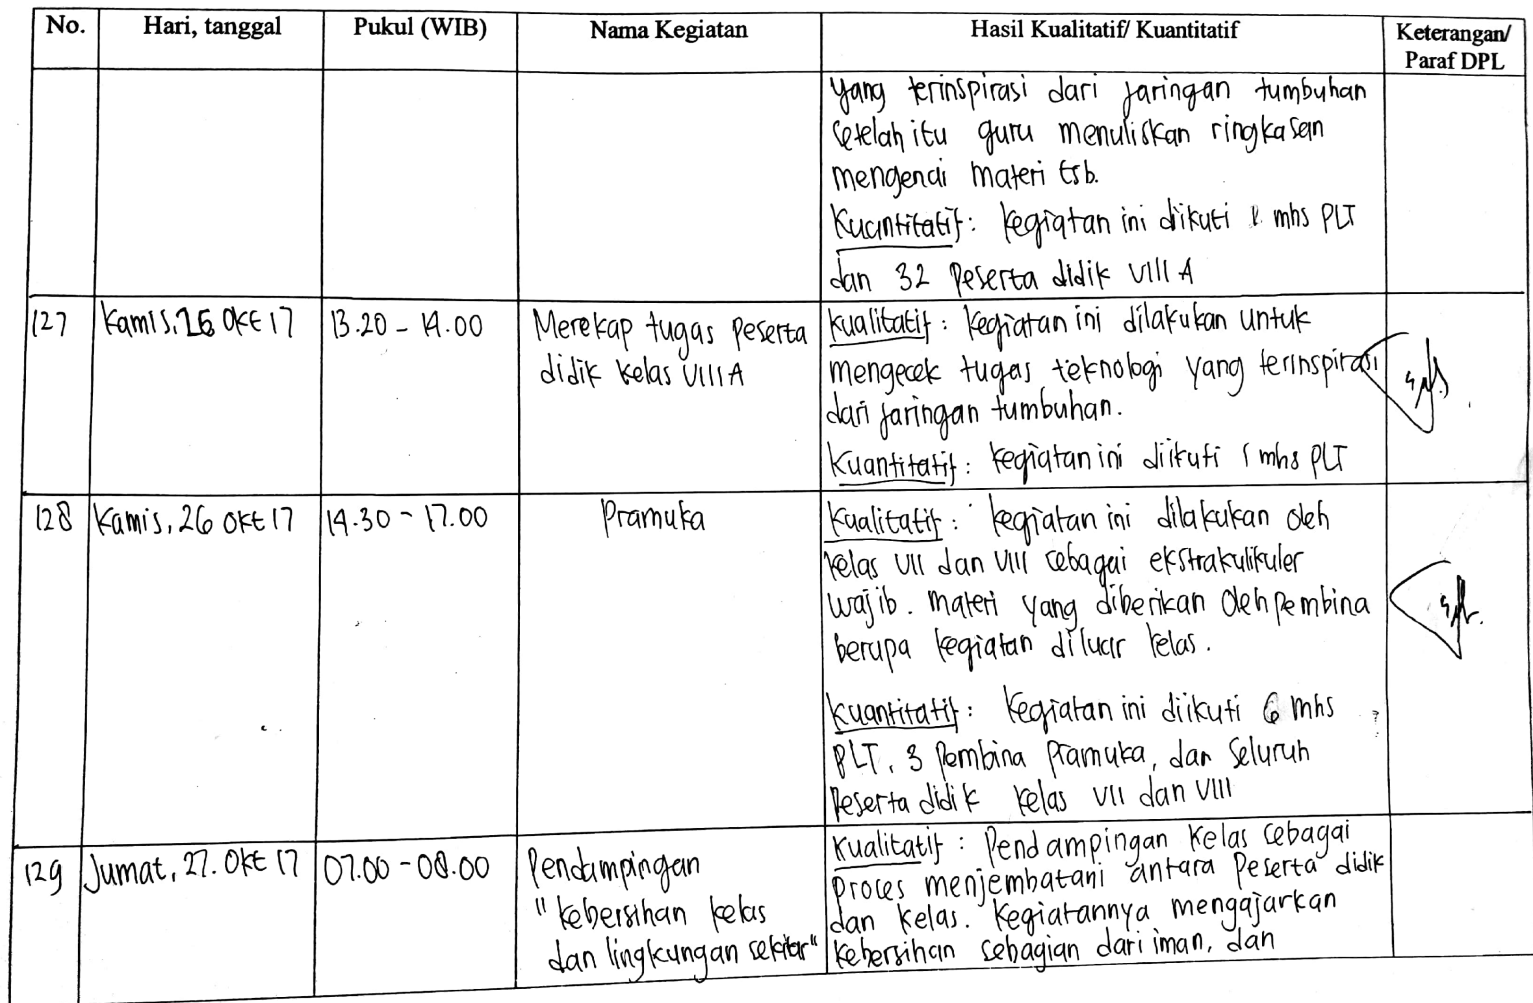 No. Hari, tanggal Pukul (WIB) Nama Kegiatan Hasil Kualitatif/ Kuantitatif Keterangan/
Paraf DPL
yang terinspirasi dari jaringan tumbuhan
setelah itu guru menuliskan ringkasan
mengenai materi tsb.
Kuantitatif: kegiatan ini diikuti 1 mhs PLT
dan 32 peserta didik VIII A
127 Kamis, 26 Okt 17 13.20 - 14.00
Merekap tugas peserta
didik kelas VIII A
Kualitatif: kegiatan ini dilakukan untuk
mengecek tugas teknologi yang terinspirasi
dari jaringan tumbuhan.
Kuantitatif: kegiatan ini diikuti 1 mhs PLT
128 Kamis, 26 Okt 17 14.30 - 17.00
Pramuka
Kualitatif: kegiatan ini dilakukan oleh
kelas VII dan VIII sebagai ekstrakulikuler
wajib. materi yang diberikan oleh pembina
berupa kegiatan diluar kelas.
Kuantitatif: kegiatan ini diikuti 6 mhs
PLT, 3 Pembina Pramuka, dan Seluruh
Peserta didik kelas VII dan VIII
129 Jumat, 27. Okt 17 07.00 - 08.00
Pendampingan
"kebersihan kelas
dan lingkungan sekitar"
Kualitatif: Pendampingan kelas sebagai
proses menjembatani antara peserta didik
dan kelas. kegiatannya mengajarkan
kebersihan sebagian dari iman, dan